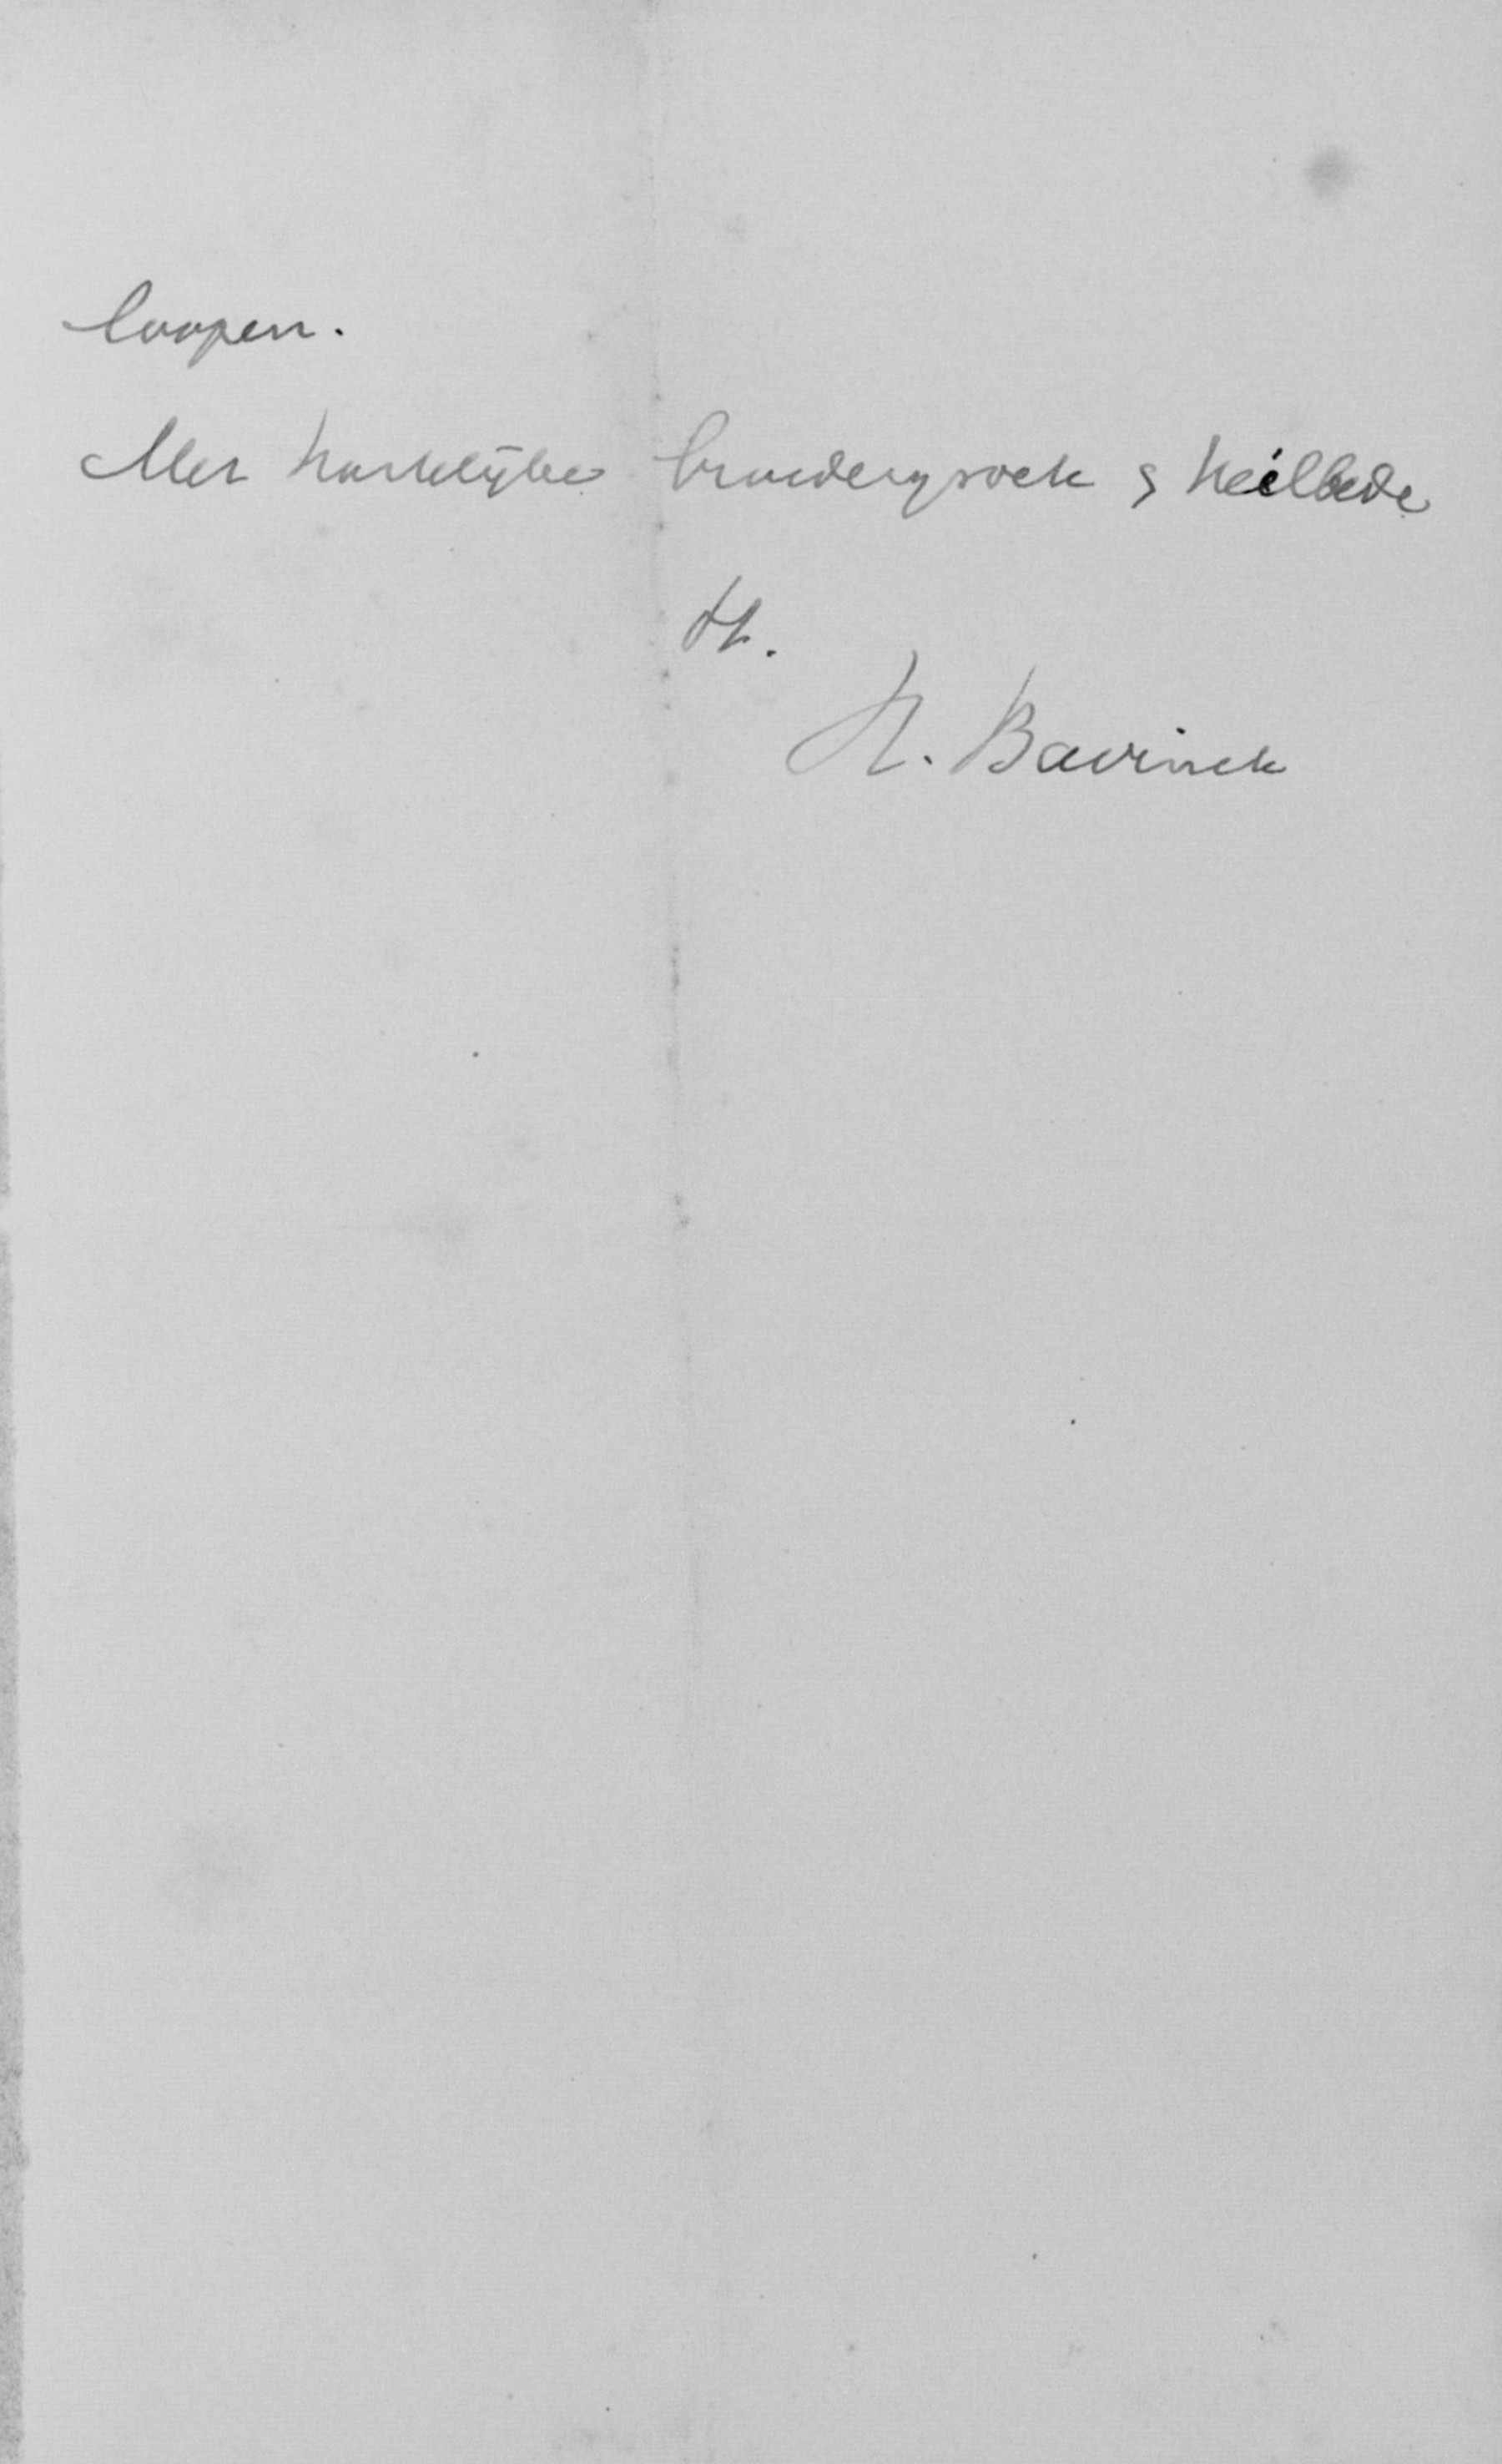 loopen.
Met hartelijke broedergroete & heilbede
tt.
H. Bavinck